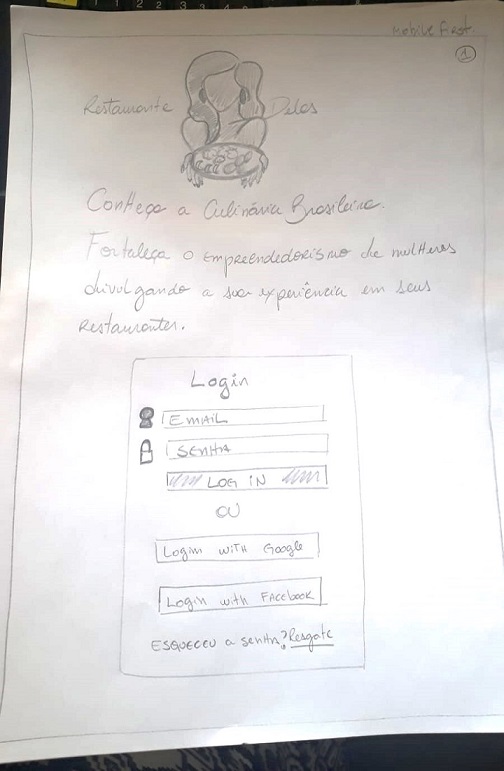 mobile first
1
Restaurante Delas
Conheça a Culinária Brasileira.
Fortaleça o empreendedorismo de mulheres
divulgando a sua experiência em seus
restaurantes.
Login
EMAIL
SENHA
LOG IN
OU
Login with Google
Login with Facebook
ESQUECEU a senha? Resgate